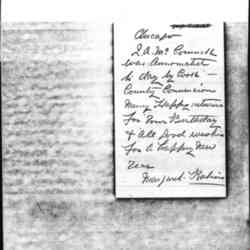 Chicago
J. A. McCormick
was Announced
to day by Cook -
County Commission
Many Happy returns
for Your Birthday
& All Good wishes
for a Happy New
Year
Margaret